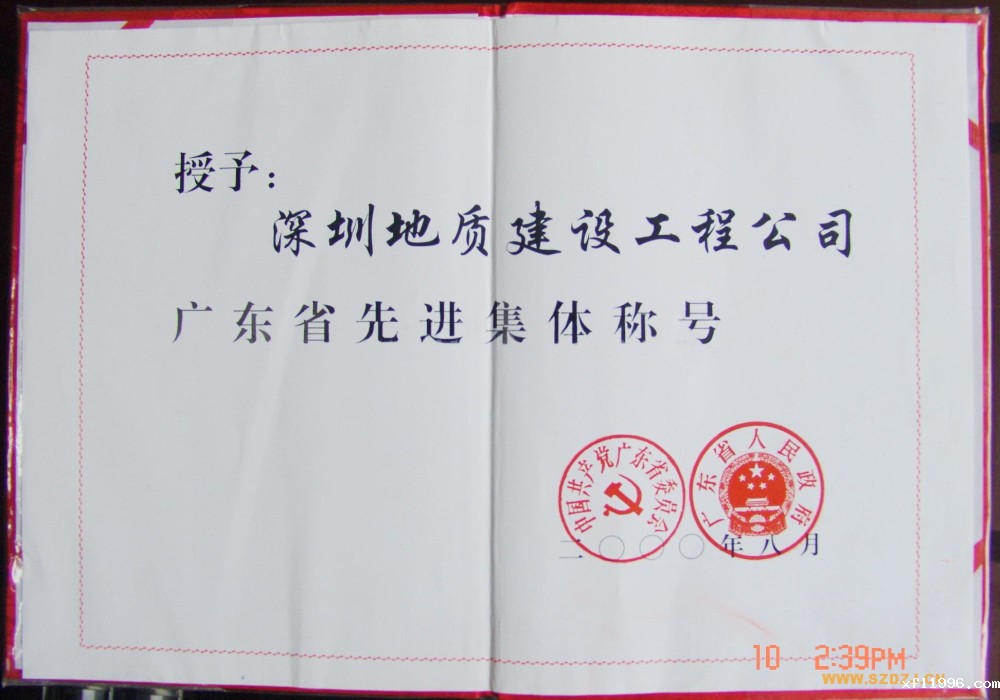 授予：
深圳地质建设工程公司
广东省先进集体称号
中国共产党广东省委员会
广东省人民政府
二〇〇〇年八月
10 2:39PM
WWW.SZDZ.CN
xfl1996.com